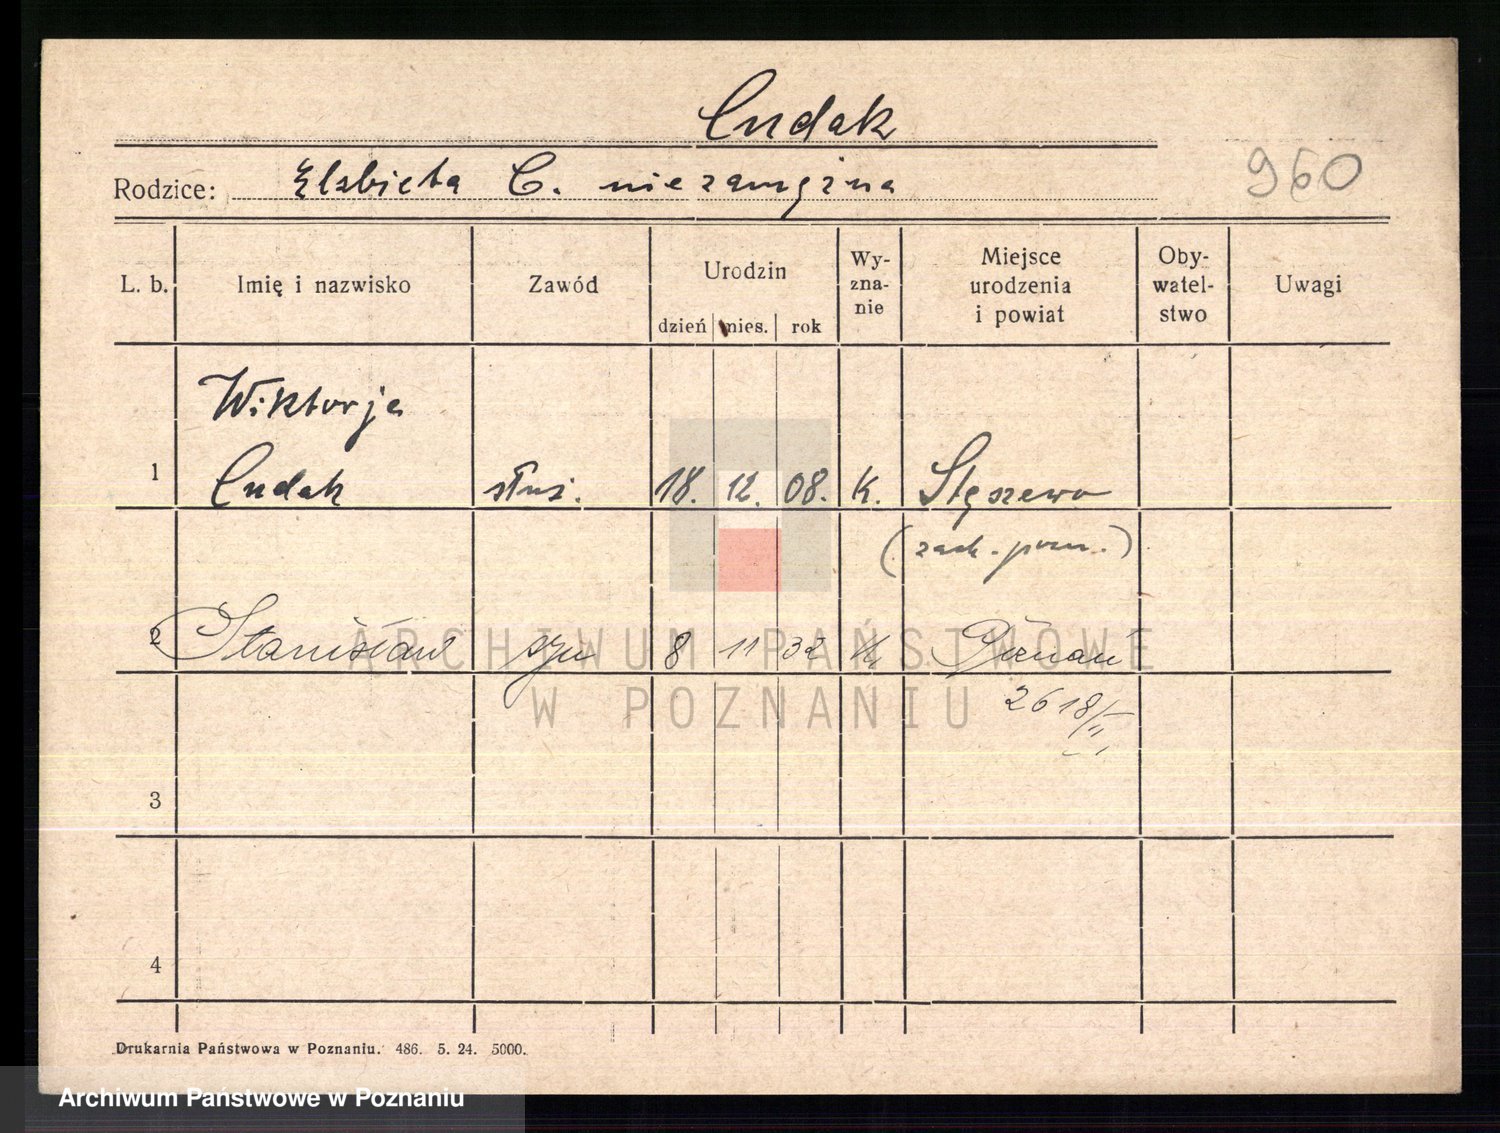 Cudak
Rodzice: Elzbieta C. niezamężna
960
L. b. Imię i nazwisko Zawód Urodzin dzień mies. rok Wy-zna-nie Miejsce urodzenia i powiat Oby-watel-stwo Uwagi
Wiktorja
1 Cudak służ. 18. 12. 08. k. Stęszewo
(zach. pozn.)
2 Stanisław syn 8 11 32 k. Poznań
2618/II
3
4
Drukarnia Państwowa w Poznaniu. 486. 5. 24. 5000.
ARCHIWUM PAŃSTWOWE
W POZNANIU
Archiwum Państwowe w Poznaniu